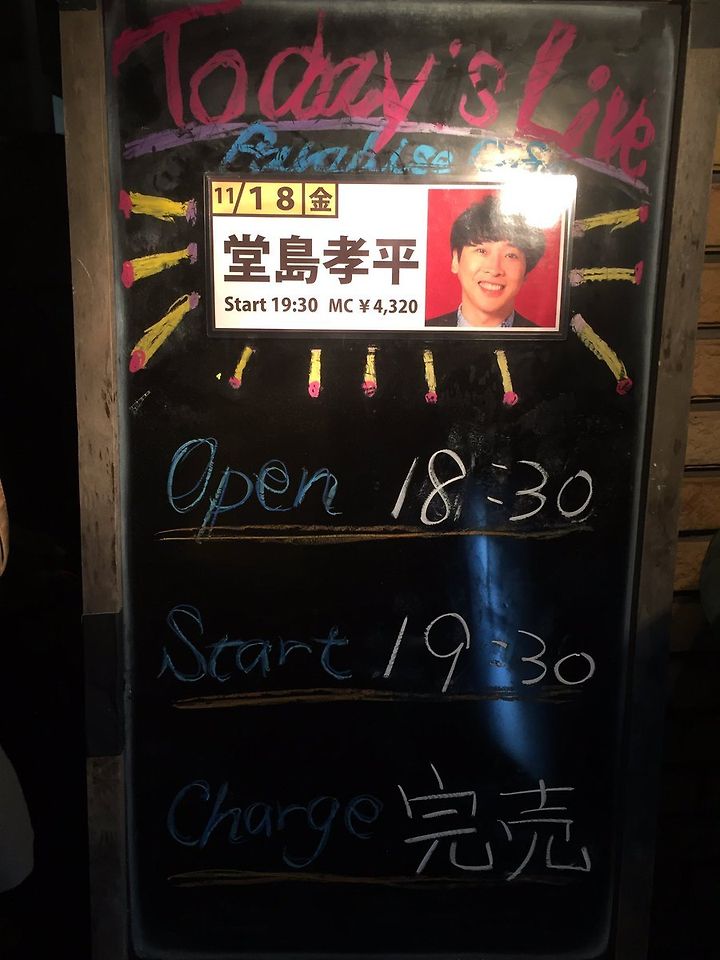 Today's Live
Paradise Cafe
11/18 金
堂島孝平
Start 19:30 MC ¥4,320
Open 18:30
Start 19:30
Charge 完売